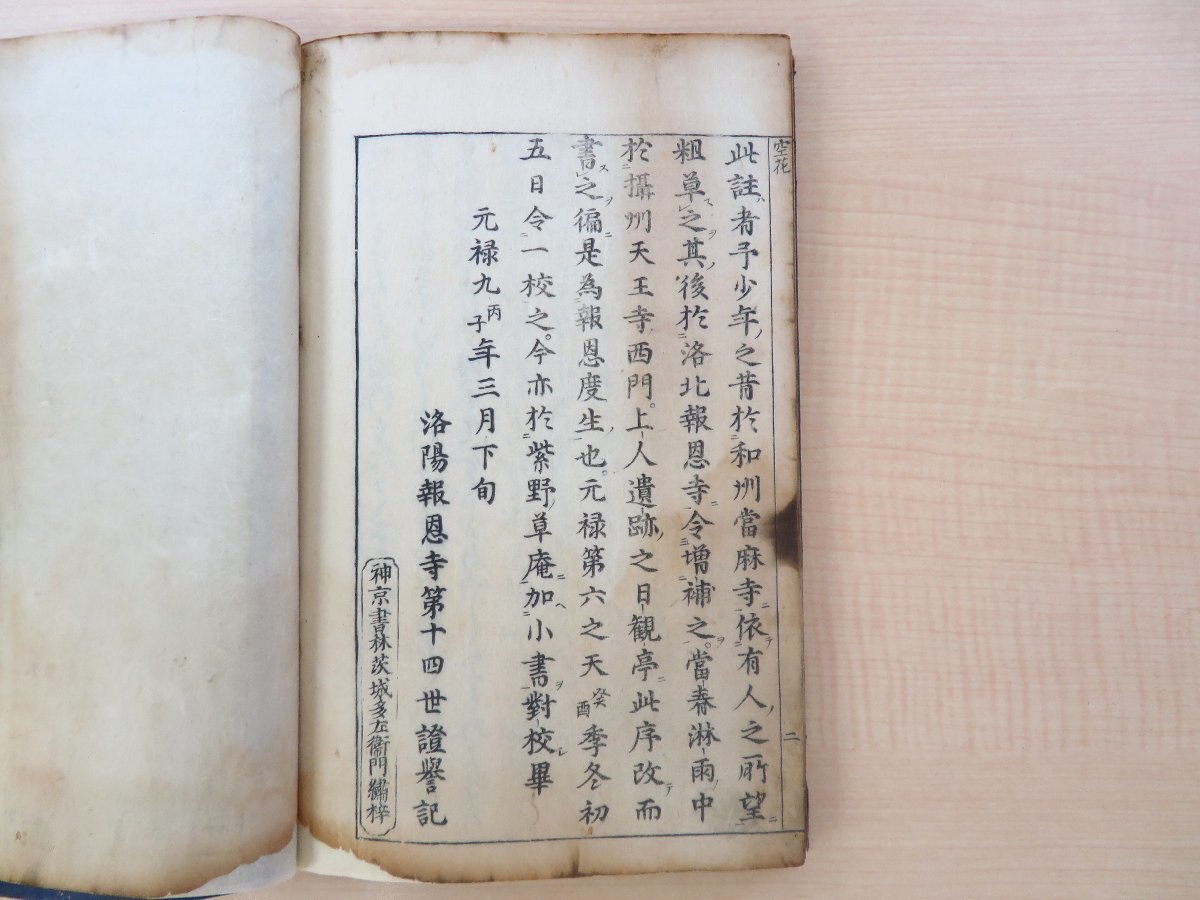 空花
二
此註者予少年ノ之昔於和州當麻寺依有人ノ之所望
粗草之其後於洛北報恩寺令増補之。當春淋雨中
於攝州天王寺西門。上人遺跡ノ之日観亭此序改而
書之徧是為報恩度生也。元禄第六之天癸酉季冬初
五日令一校之。今亦於紫野草庵加小書對校畢
元禄九丙子年三月下旬
洛陽報恩寺第十四世證譽記
神京書林茨城多左衞門繡梓